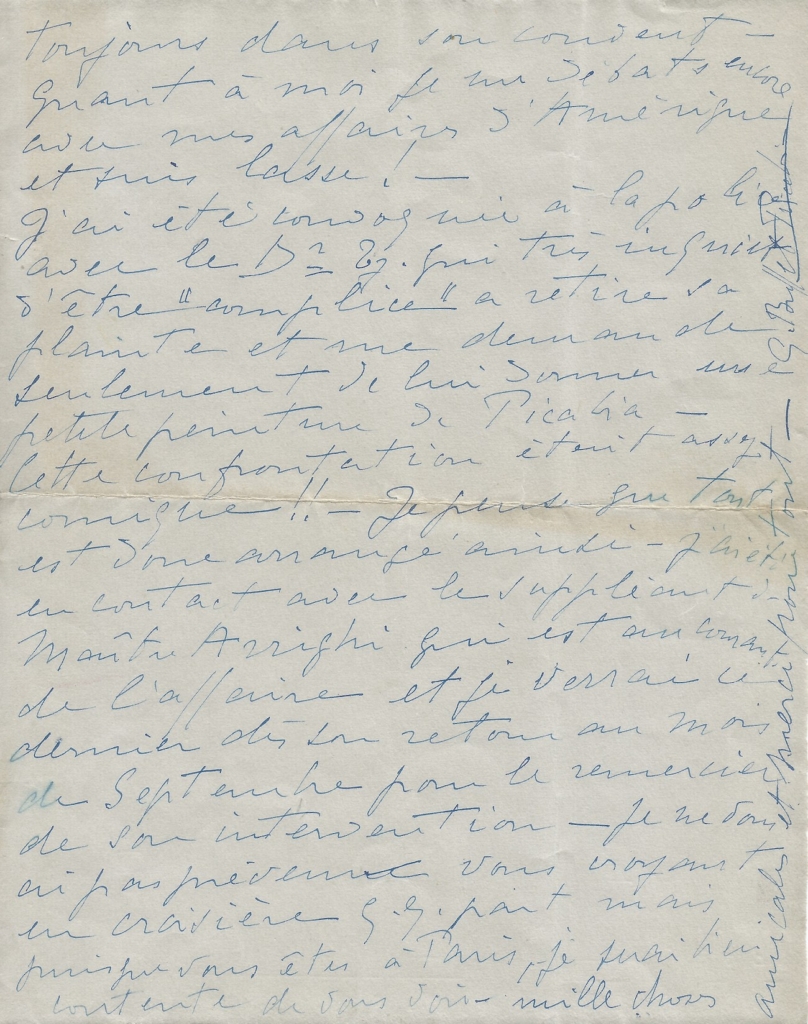 toujours dans son couvent —
Quant à moi je me débats encore
avec mes affaires d'Amérique
et suis lasse ! —
J'ai été convoquée à la police
avec le Dr qui très inquiet
d'être "complice" a retiré sa
plainte et me demande
seulement de lui donner une
petite peinture de Picabia —
Cette confrontation était assez
comique !! — Je pense que tout
est donc arrangé ainsi — j'ai été
en contact avec le suppléant de
Maître Arrighi qui est au courant
de l'affaire et je verrai ce
dernier dès son retour au mois
de Septembre pour le remercier
de son intervention — Je ne vous
ai pas prévenue vous croyant
en croisière q.q. part mais
puisque vous êtes à Paris, je serai bien
contente de vous voir — mille choses
amicales et merci pour tout —
G. Buffet Picabia